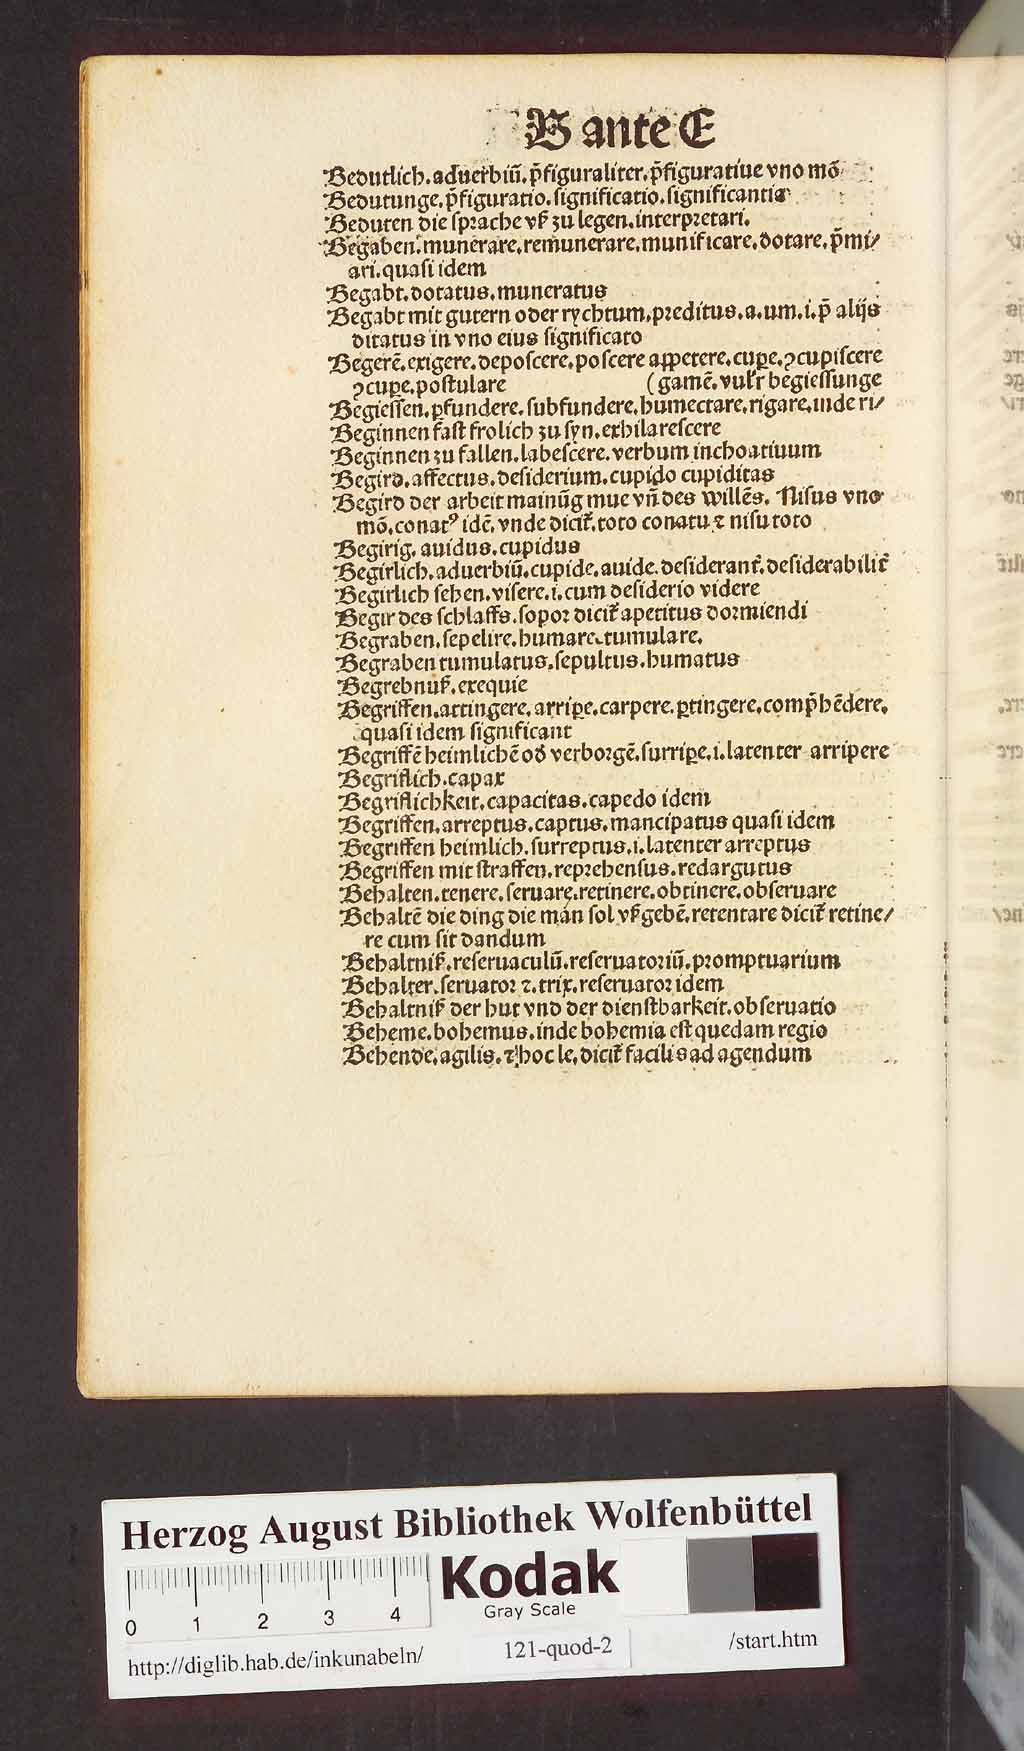 B ante E
Bedutlich. aduerbiū. p̄figuraliter. p̄figuratiue vno mō
Bedutunge. p̄figuratio. significatio. significantia
Beduten die sprache vß zu legen. interpretari.
Begaben. munerare. remunerare. munificare. dotare. p̄mi/
ari. quasi idem
Begabt. dotatus. muneratus
Begabt mit gutern oder rychtum. preditus. a. um. i. p̄ alijs
ditatus in vno eius significato
Begerē. exigere. deposcere. poscere appetere. cuꝑe. ꝯcupiscere
ꝯcuꝑe. postulare (gamē. vul'r begiessunge
Begiessen. ꝑfundere. subfundere. humectare. rigare. inde ri/
Beginnen fast frolich zu syn. exhilarescere
Beginnen zu fallen. labescere. verbum inchoatiuum
Begird. affectus. desiderium. cupido cupiditas
Begird der arbeit mainūg mue vn̄ des willēs. Nisus vno
mō. conatꝰ idē. vnde dicit̄. toto conatu ⁊ nisu toto
Begirig. auidus. cupidus
Begirlich. aduerbiū. cupide. auide. desiderant̄. desiderabilit̄
Begirlich sehen. visere. i. cum desiderio videre
Begir des schlaffs. sopor dicit̄ apetitus dormiendi
Begraben. sepelire. humare. tumulare.
Begraben tumulatus. sepultus. humatus
Begrebnuß. exequie
Begriffen. attingere. arriꝑe. carpere. ꝑtingere. comp̄hēdere.
quasi idem significant
Begriffē heimlichē od̄ verborgē. surriꝑe. i. latenter arripere
Begriflich. capax
Begriflichkeit. capacitas. capedo idem
Begriffen. arreptus. captus. mancipatus quasi idem
Begriffen heimlich. surreptus. i. latenter arreptus
Begriffen mit straffen. reprehensus. redargutus
Behalten. tenere. seruare. retinere. obtinere. obseruare
Behaltē die ding die man sol vßgebē. retentare dicit̄ retine/
re cum sit dandum
Behaltniß. reseruaculū. reseruatoriū. promptuarium
Behalter. seruator ⁊. trix. reseruator idem
Behaltniß der hut vnd der dienstbarkeit. obseruatio
Beheme. bohemus. inde bohemia est quedam regio
Behende. agilis. ⁊ hoc le. dicit̄ facilis ad agendum
Herzog August Bibliothek Wolfenbüttel
Kodak
Gray Scale
0 1 2 3 4
http://diglib.hab.de/inkunabeln/ 121-quod-2 /start.htm